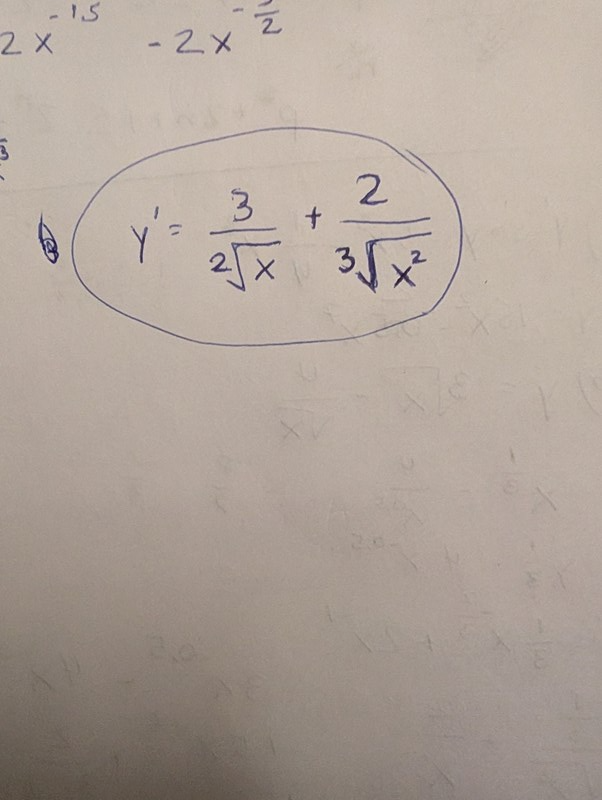 2x^{-1.5} - 2x^{-\frac{3}{2}}
y' = \frac{3}{2\sqrt{x}} + \frac{2}{3\sqrt{x^2}}